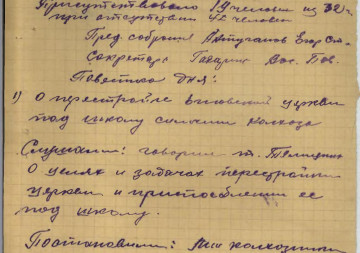 Присутствовало 19 человек из 32-
при отсутствии 42 человек
Пред собрания Егор Ст-
Секретарь Гагарин Вас. Пав.
Повестка дня:
1) О перестройке церкви
под школу силами колхоза
Слушали: говорил т.
О целях и задачах перестройки
церкви и приспособлении ее
под школу.
Постановили: Мы колхозники